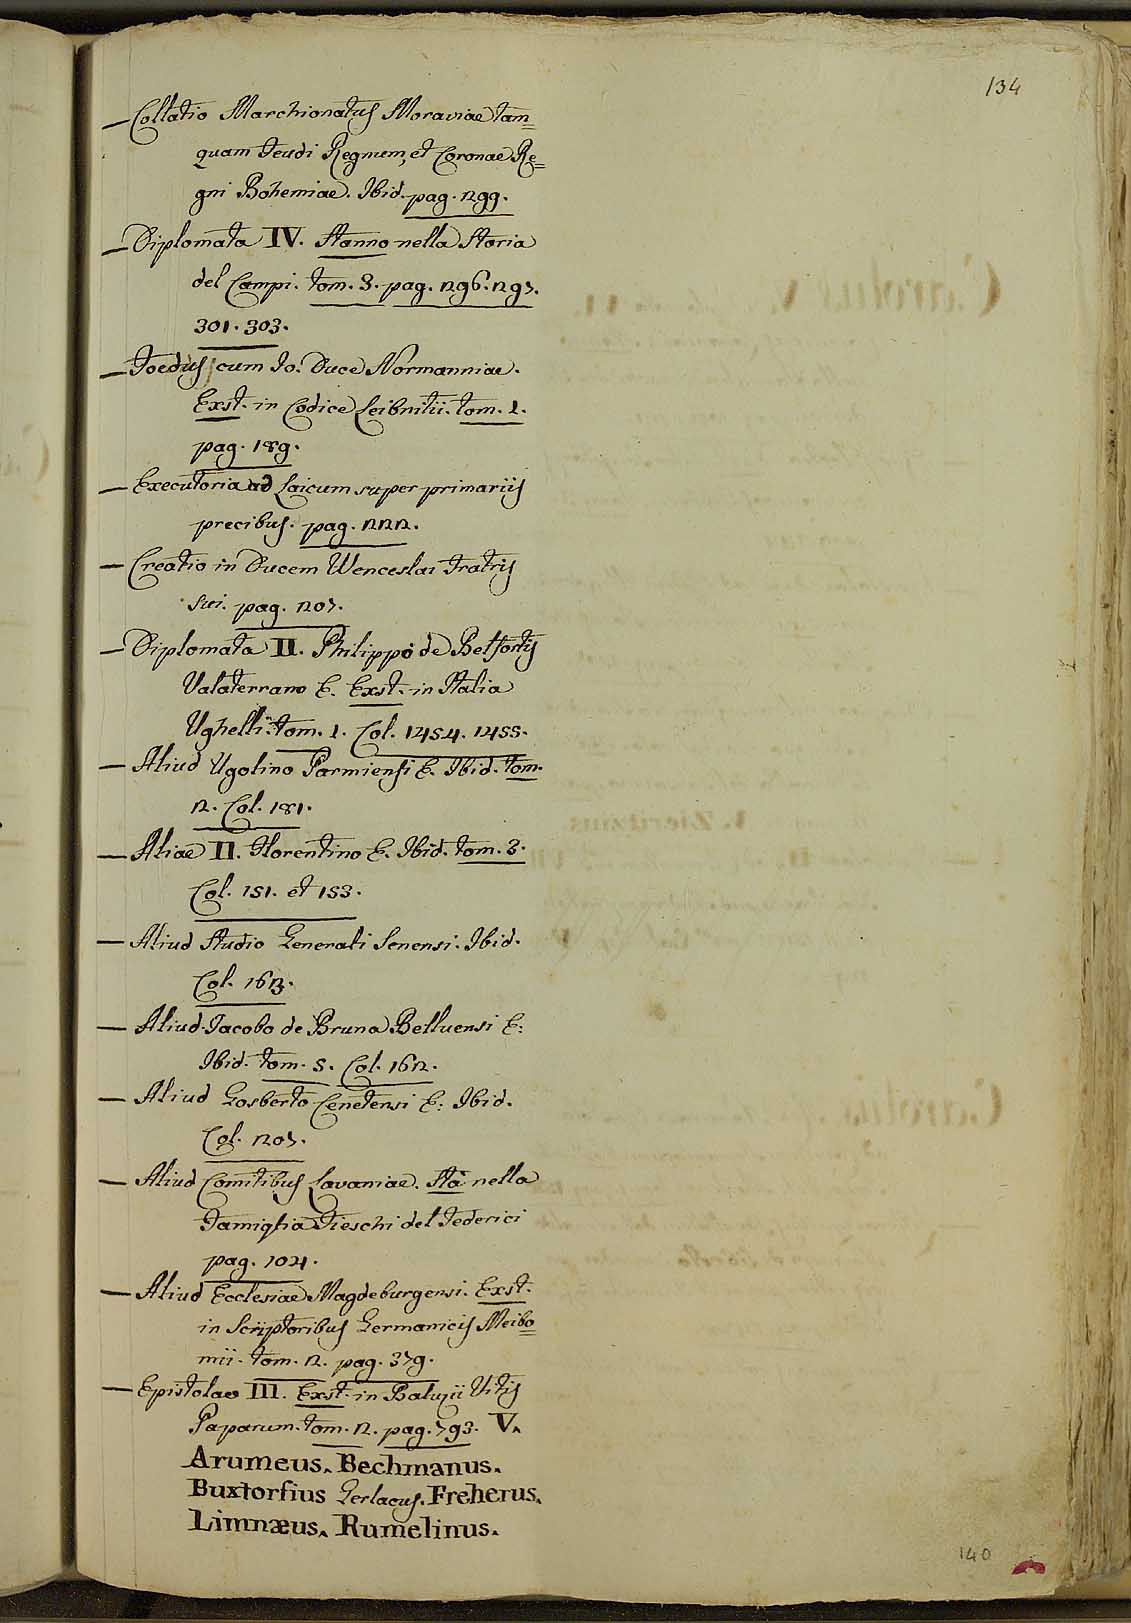 134
— Collatio Marchionatus Moraviae tam=
quam feudi Regnum, et Coronae Re=
gni Bohemiae. Ibid. pag. 299.
— Diplomata IV. Stanno nella Storia
del Campi. tom. 3. pag. 296. 297.
301. 303.
— Foedus cum Io. Duce Normanniae.
Exst. in Codice Leibnitii. tom. 1.
pag. 189.
— Executoria ad Laicum super primariis
precibus. pag. 222.
— Creatio in Ducem Wenceslai Fratris
sui. pag. 207.
— Diplomata II. Philippo de Belfortis
Valaterrano E. Exst. in Italia
Ughelli. tom. 1. Col. 1454. 1455.
— Aliud Ugolino Parmiensi E. Ibid. tom.
2. Col. 181.
— Aliae II. Florentino E. Ibid. tom. 3.
Col. 151. et 153.
— Aliud Studio Generali Senensi. Ibid.
Col.
— Aliud Iacobo de Bruna Belluensi E:
Ibid. tom. 5. Col. 162.
— Aliud Gosberto Cenetensi E: Ibid.
Col. 207.
— Aliud Comitibus Lavaniae. Stà nella
Famiglia Fieschi del Federici
pag. 104.
— Aliud Ecclesiae Magdeburgensi. Exst.
in Scriptoribus Germanicis Meibo=
mii. tom. 2. pag. 379.
— Epistolae III. Exst. in Baluzii Vitis
Paparum. tom. 2. pag. 793. V.
Arumeus. Bechmanus.
Buxtorfius Gerlacus. Freherus.
Limnæus. Rumelinus.
140